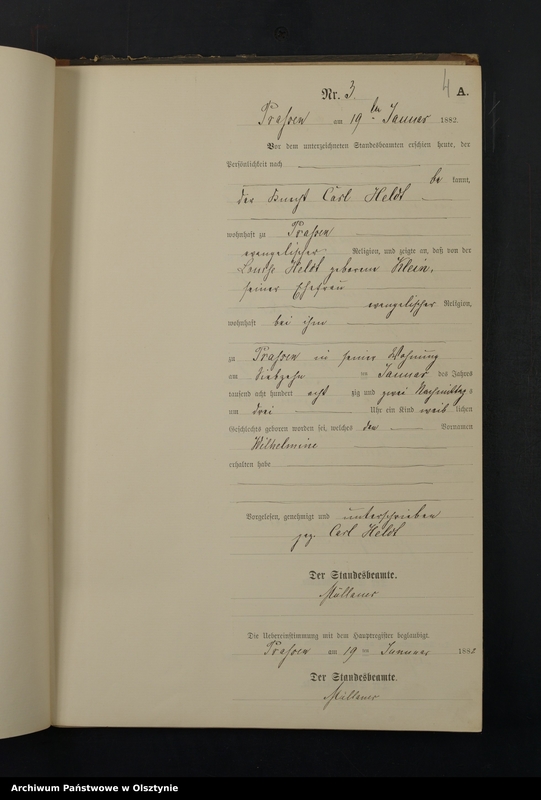 4
Nr. 3. A.
am 19ten Januar 1882
Vor dem unterzeichneten Standesbeamten erschien heute, der
Persönlichkeit nach
be kannt,
der Knecht Carl Heldt
wohnhaft zu
evangelischer Religion, und zeigte an, daß von der
Louise Heldt geborene Klein,
seiner Ehefrau
evangelischer Religion,
wohnhaft bei ihm
zu in seiner Wohnung
am siebzehn ten Januar des Jahres
tausend acht hundert acht zig und zwei Nachmittags
um drei Uhr ein Kind weib lichen
Geschlechts geboren worden sei, welches den Vornamen
Wilhelmine
erhalten habe
Vorgelesen, genehmigt und unterschrieben
gez. Carl Heldt
Der Standesbeamte.
Die Uebereinstimmung mit dem Hauptregister beglaubigt.
am 19 ten Januar 1882
Der Standesbeamte.
Archiwum Państwowe w Olsztynie